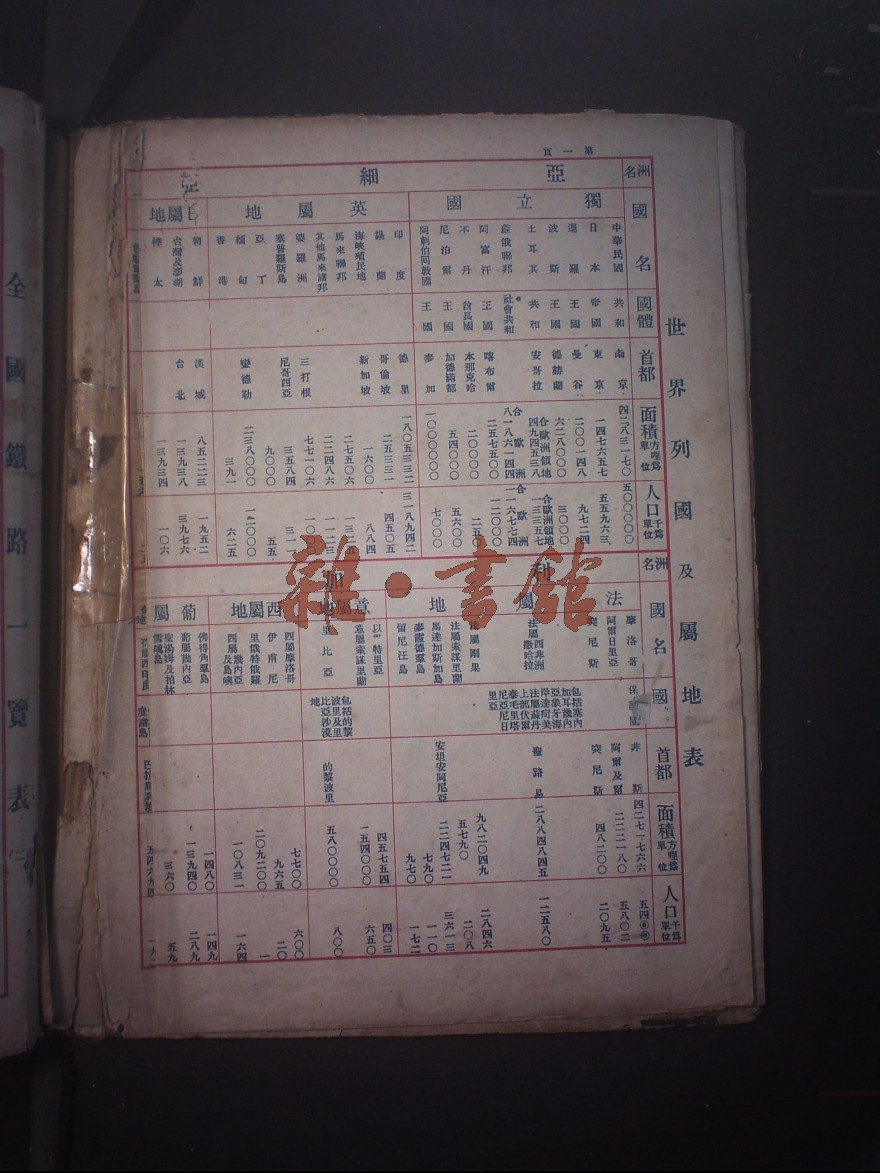 世界列國及屬地表
第一頁
洲名
亞細亞
國名
獨立國
英屬地
日屬地
中華民國
日本
暹羅
波斯
土耳其
蘇俄聯邦
阿富汗
不丹
尼泊爾
阿剌伯回教國
印度
錫蘭
海峽殖民地
馬來聯邦
其他馬來諸邦
婆羅洲
塞普羅斯島
亞丁
緬甸
香港
朝鮮
台灣及澎湖
樺太
國體
共和
帝國
王國
王國
共和
社會共和
王國
酋長國
王國
王國
首都
南京
東京
曼谷
德赫蘭
安哥拉
喀布爾
本那克哈
加德滿都
麥加
德里
哥倫坡
新加坡
三打根
尼哥西亞
蠻德勒
漢城
台北
面積方哩爲單位
四二八三一七〇
一四七六五七
二〇〇一四八
六二八〇〇〇
合歐洲領地
四九四五三八
合歐洲
八一八六一四四
二五七五〇〇
二〇〇〇〇
五四〇〇〇
一〇〇〇〇〇〇
一八〇五三三二
二五三三一
一六〇〇
二七五〇六
二二四八六
七七一〇六
三五八四
九〇〇〇
二三八〇〇〇
三九一
八五二二三
一三九三八
一三九三四
人口千爲單位
五〇〇〇〇〇
五五九六三
九七二四
三〇〇〇
合歐洲領地
一三三五七
合歐洲
一一六七七四
一二〇〇〇
二五〇
五六〇〇
七〇〇〇
三一八九四二
四五〇五
八八四
一三二五
一一二三
三一一
五五
一二〇〇〇
六二五
一九五二
三九七六
一〇六
洲名
利加
國名
法屬地
意屬地
西屬地
葡屬
摩洛哥
阿爾日里亞
突尼斯
法屬西非洲
撒哈拉
法屬剛果
法屬索謀里蘭
馬達加斯加島
麥霞德羣島
留尼汪島
以特里亞
意屬索謀里蘭
里比亞
西屬摩洛哥
伊甫尼
里俄特俄羅
西屬幾內亞
四屬及島嶼
佛得角羣島
葡屬幾內亞
聖湯姆及柏林
國
保護國
包括塞內
加耳幾內
亞象牙海
岸達荷美
法屬蘇丹
上部伏爾
泰毛里塔
尼亞尼日
里亞
包括的黎
波里及里
比亞沙漠
地
首都
非斯
阿爾及爾
突尼斯
聖路易
安坦安阿尼亞
的黎波里
面積方哩爲單位
四二七一七六六
二二二一八〇
四八二〇〇
二八八四八四五
九八二〇四九
五七九〇
二二四七二一
七九〇
九七〇
四五七五四
一五四〇〇〇
五八〇〇〇〇
七七〇〇
九六五
二〇九二〇〇
一〇八三一
一四八〇
一三九四〇
三六〇
人口千爲單位
五八〇二
二〇九五
一二五八〇
二八四六
二〇八
三六一三
一一〇
一七二
四〇三
六五〇
八〇〇
六〇〇
二〇
一
一六四
一四九
二八九
五九
全國鐵路一覽表
雜·書館